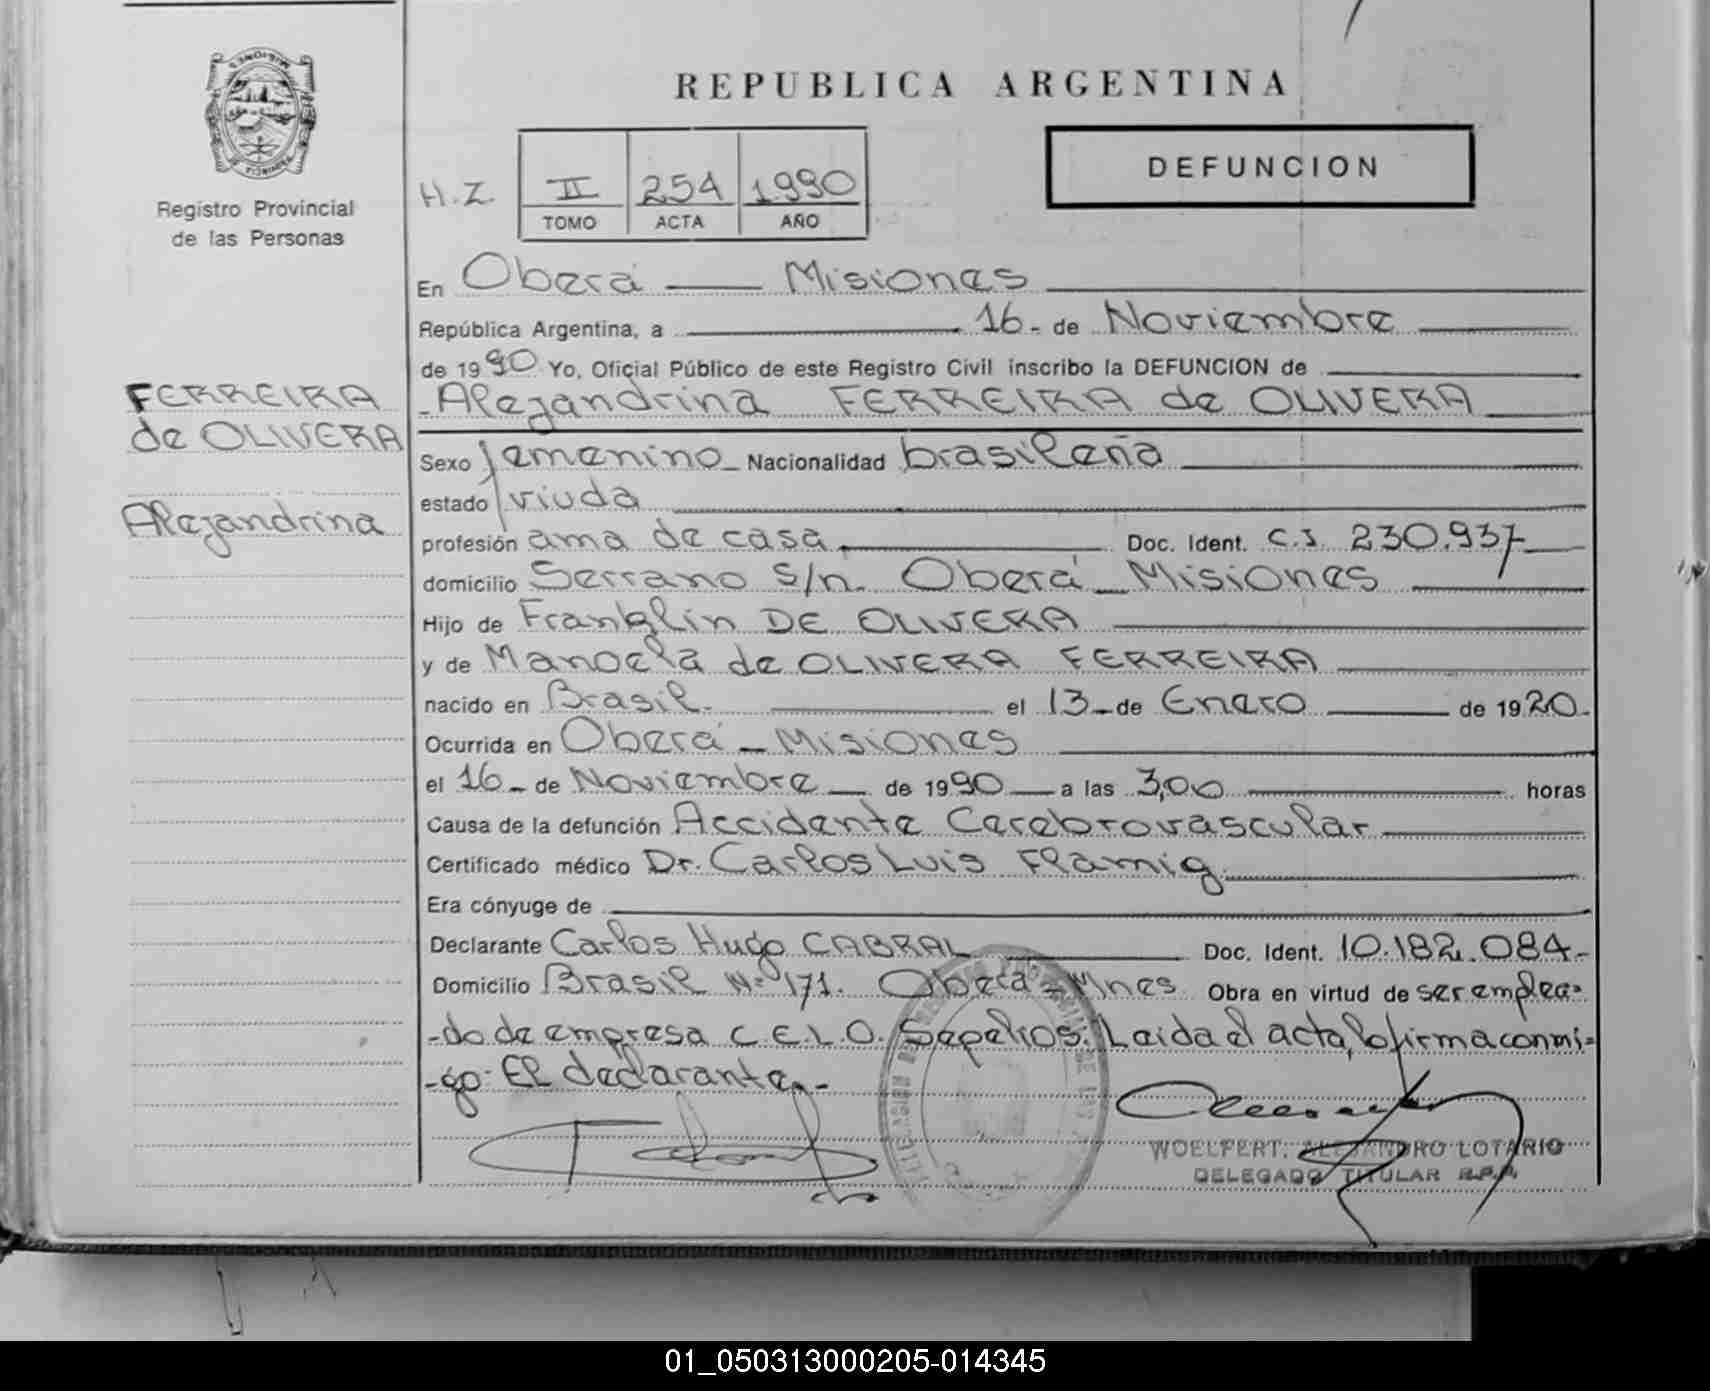 REPUBLICA ARGENTINA
Registro Provincial
de las Personas
H.Z.
II 254 1990
TOMO ACTA AÑO
DEFUNCION
FERREIRA
de OLIVERA
Alejandrina
En Oberá Misiones
República Argentina, a 16 de Noviembre
de 1990 Yo, Oficial Público de este Registro Civil inscribo la DEFUNCION de
Alejandrina FERREIRA de OLIVERA
Sexo femenino Nacionalidad brasileña
estado viuda
profesión ama de casa Doc. Ident. C.I. 230.937
domicilio Serrano S/n. Oberá Misiones
Hijo de Franklin DE OLIVERA
y de Manoela de OLIVERA FERREIRA
nacido en Brasil. el 13 de Enero de 1920
Ocurrida en Oberá - Misiones
el 16 de Noviembre de 1990 a las 3,00 horas
Causa de la defunción Accidente Cerebrovascular
Certificado médico Dr. Carlos Luis Flamig
Era cónyuge de
Declarante Carlos Hugo CABRAL Doc. Ident. 10.182.084
Domicilio Brasil Nº 171. Oberá - Mnes Obra en virtud de ser emplea-
-do de empresa C.E.L.O. Sepelios. Leida el acta, lo firma conmi-
-go: El declarante.-
WOELFERT, ALEJANDRO LOTARIO
DELEGADO TITULAR R.P.P.
01_050313000205-014345